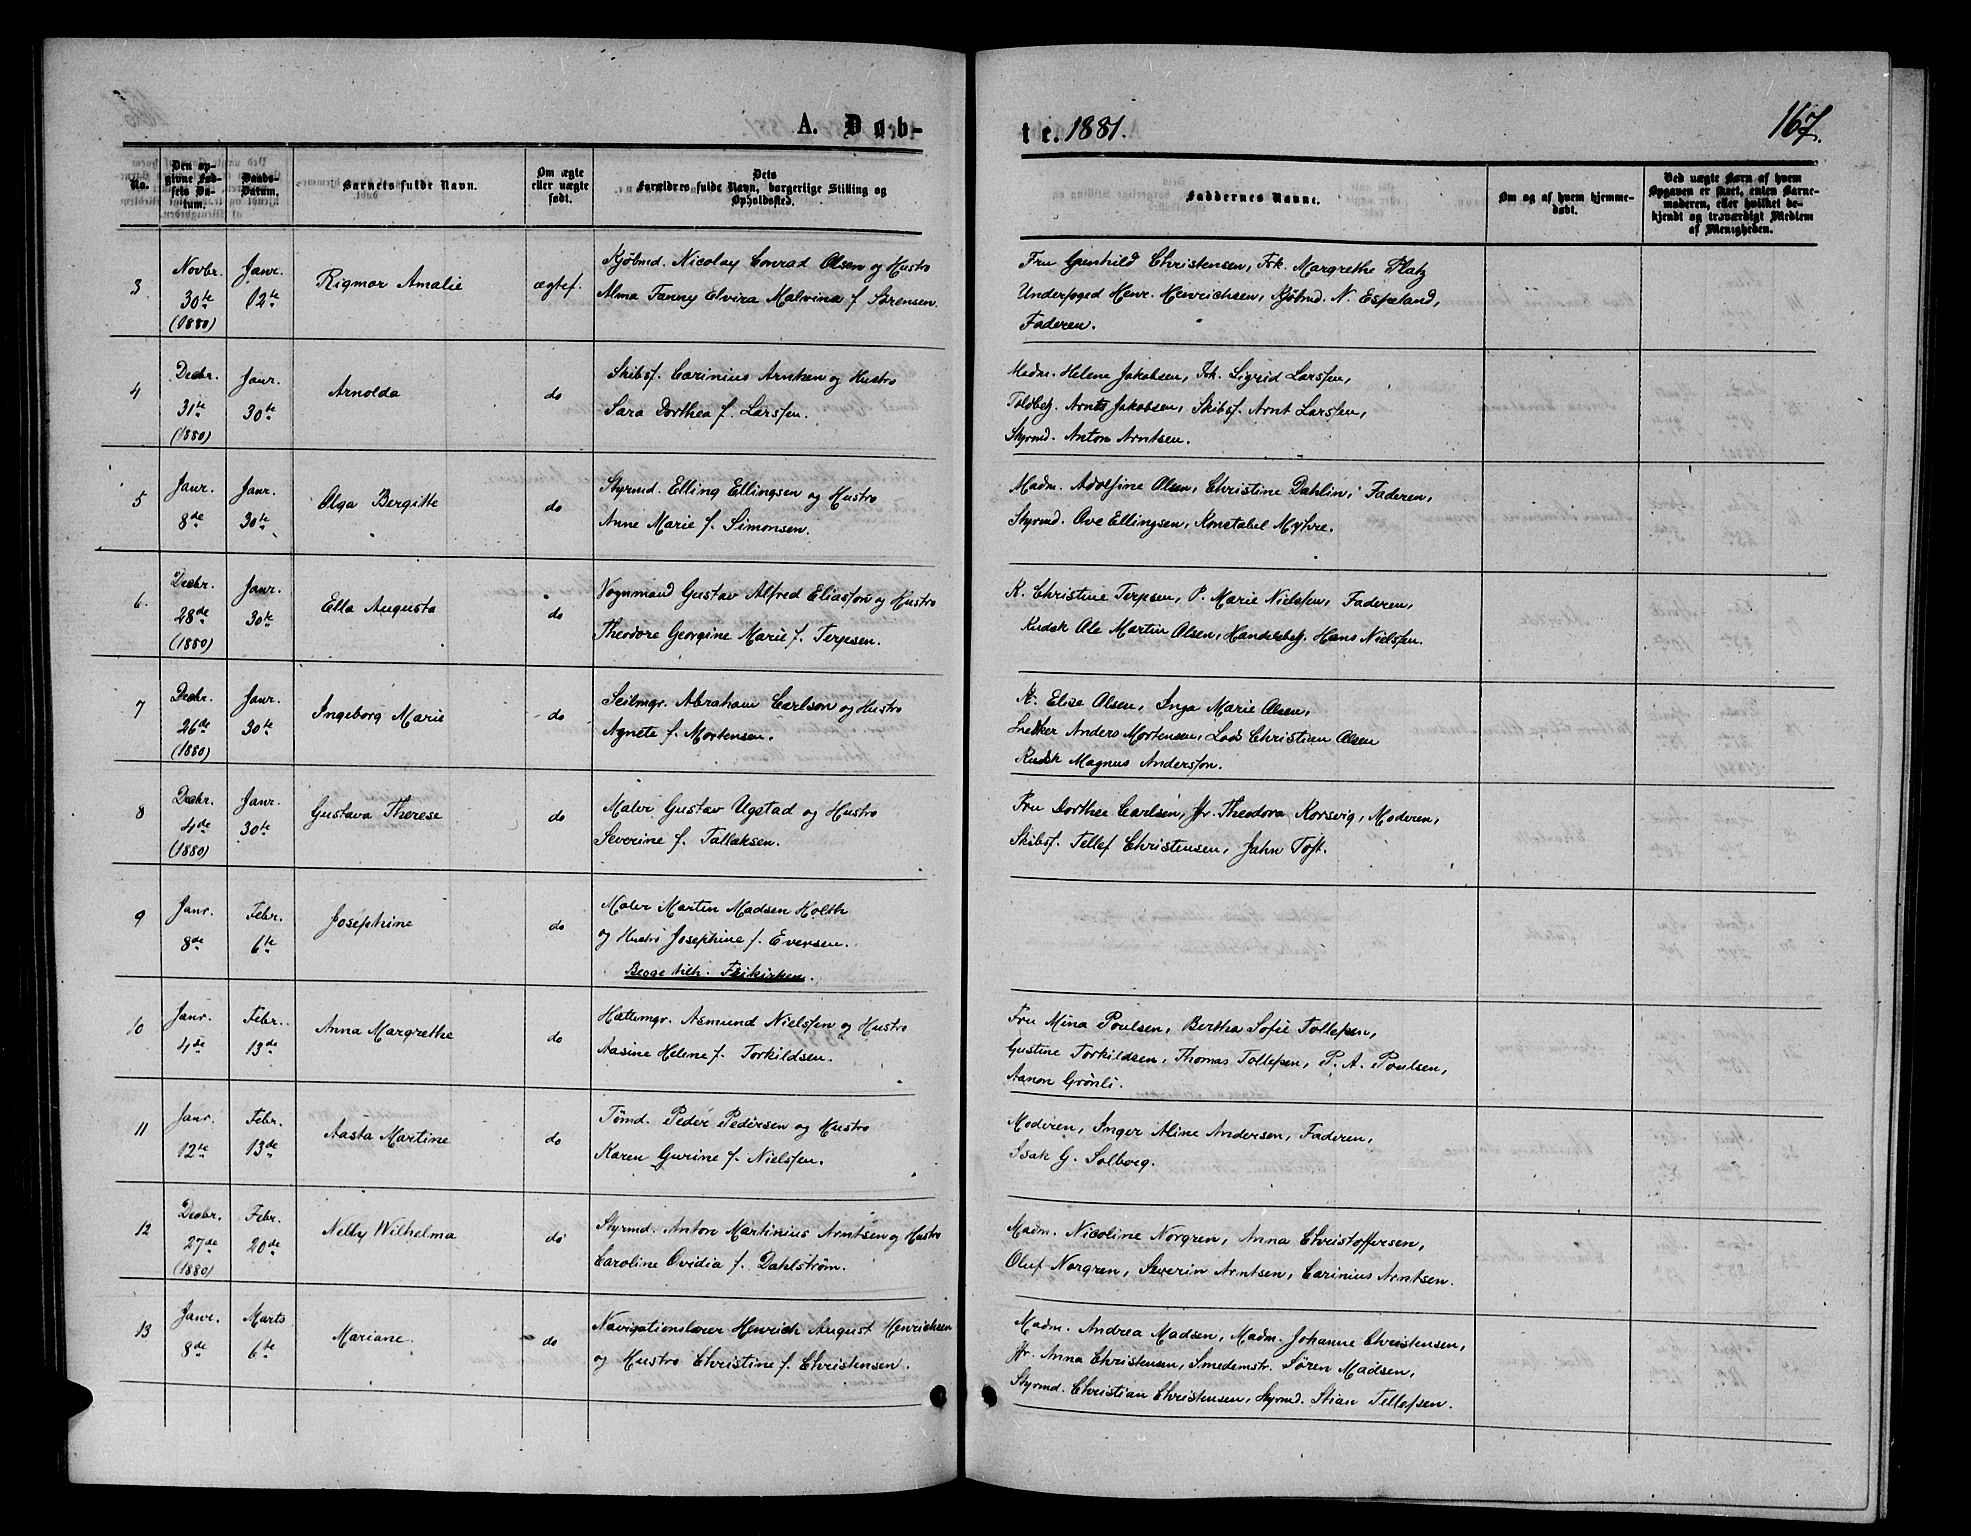 A. Døb-
te. 1881.
167.
No.
Den opgivne Fødsels Datum.
Daabs-Datum.
Barnets fulde Navn.
Om ægte eller uægte født.
Dets Forældres fulde Navn, borgerlige Stilling og Opholdssted.
Faddernes Navne.
Om og af hvem hjemmedøbt.
Ved uægte Børn af hvem Opgaven er skeet, enten Barnemoderen, eller hvilket bekjendt og troværdigt Medlem af Menigheden.
3
Novbr. 30te (1880)
Janr. 12te
Rigmor Amalie
ægtef.
Kjøbmd. Nicolay Conrad Olsen og Hustro
Alma Fanny Elvira Malvina f. Sørensen.
Fru Gunhild Christensen, Frk. Margrethe Platz
Underfoged Henr. Henrichsen, Kjøbmd. N. Espeland,
Faderen.
4
Decbr. 31te (1880)
Janr. 30te
Arnolda
do
Skibsf. Carinius Arntsen og Hustro
Sara Dorthea f. Larssen.
Madm. Helene Jakobsen, Frk. Sigrid Larssen,
Toldbetj. Arnt Jakobsen, Skibsf. Arnt Larssen,
Styrmd. Anton Arntsen.
5
Janr. 8de
Janr. 30te
Olga Bergitte
do
Styrmd. Elling Ellingsen og Hustro
Anne Marie f. Simonsen.
Madm. Adolfine Olsen, Christine Dahlin, Faderen,
Styrmd. Ove Ellingsen, Konstabel Myhre.
6.
Decbr. 28de (1880)
Janr. 30te
Ella Augusta
do
Vognmand Gustav Alfred Eliasson og Hustro
Theodore Georgine Marie f. Terpsen.
K. Christine Terpsen, P. Marie Nielssen, Faderen,
Kudsk Ole Martin Olsen, Handelsbetj. Hans Nielssen.
7
Decbr. 26de (1880)
Janr. 30te
Ingeborg Marie
do
Seilmgr. Abraham Carlson og Hustro
Agnete f. Mortensen.
Elise Olsen, Inga Marie Olsen,
Snedker Anders Mortensen, Lods Christian Olsen
Kudsk Magnus Andersson.
8
Decbr. 4de (1880)
Janr. 30te
Gustava Therese
do
Maler Gustav Ugstad og Hustro
Severine f. Tallaksen.
Fru Dorthee Carlsen, Jfr. Theodora Korsvig, Moderen,
Skibsf. Tellef Christensen, Jahn Toft.
9
Janr. 8de
Febr. 6te
Josephine
do
Maler Martin Madsen Holth
og Hustro Josephine f. Eversen.
Begge tilh. Frikirken.
10
Janr. 4de
Febr. 13de
Anna Margrethe
do
Hattemgr. Asmund Nielssen og Hustro
Aasine Helene f. Torkildsen.
Fru Mina Poulsen, Bertha Sofie Tollefsen,
Gustine Torkildsen, Thomas Tollefsen, P. A. Poulsen,
Aanon Grønli.
11
Janr. 12te
Febr. 13de
Aasta Martine
do
Tømd. Peder Pedersen og Hustro
Karen Gurine f. Nielssen.
Moderen, Inger Aline Andersen, Faderen,
Isak G. Solborg.
12
Decbr. 27de (1880)
Febr. 20de
Nelly Wilhelma
do
Styrmd. Anton Martinius Arntsen og Hustro
Caroline Ovidia f. Dahlstrøm.
Madm. Nicoline Norgren, Anna Christoffersen,
Oluf Norgren, Severin Arntsen, Carinius Arntsen.
13
Janr. 8de
Marts 6te
Mariane.
do
Navigationslærer Henrich August Henrichsen
og Hustro Christine f. Christensen.
Madm. Andrea Madsen, Madm. Johanne Christensen,
Jfr. Anna Christensen, Smedemstr. Søren Madsen,
Styrmd. Christian Christensen, Styrmd. Stian Tellefsen.